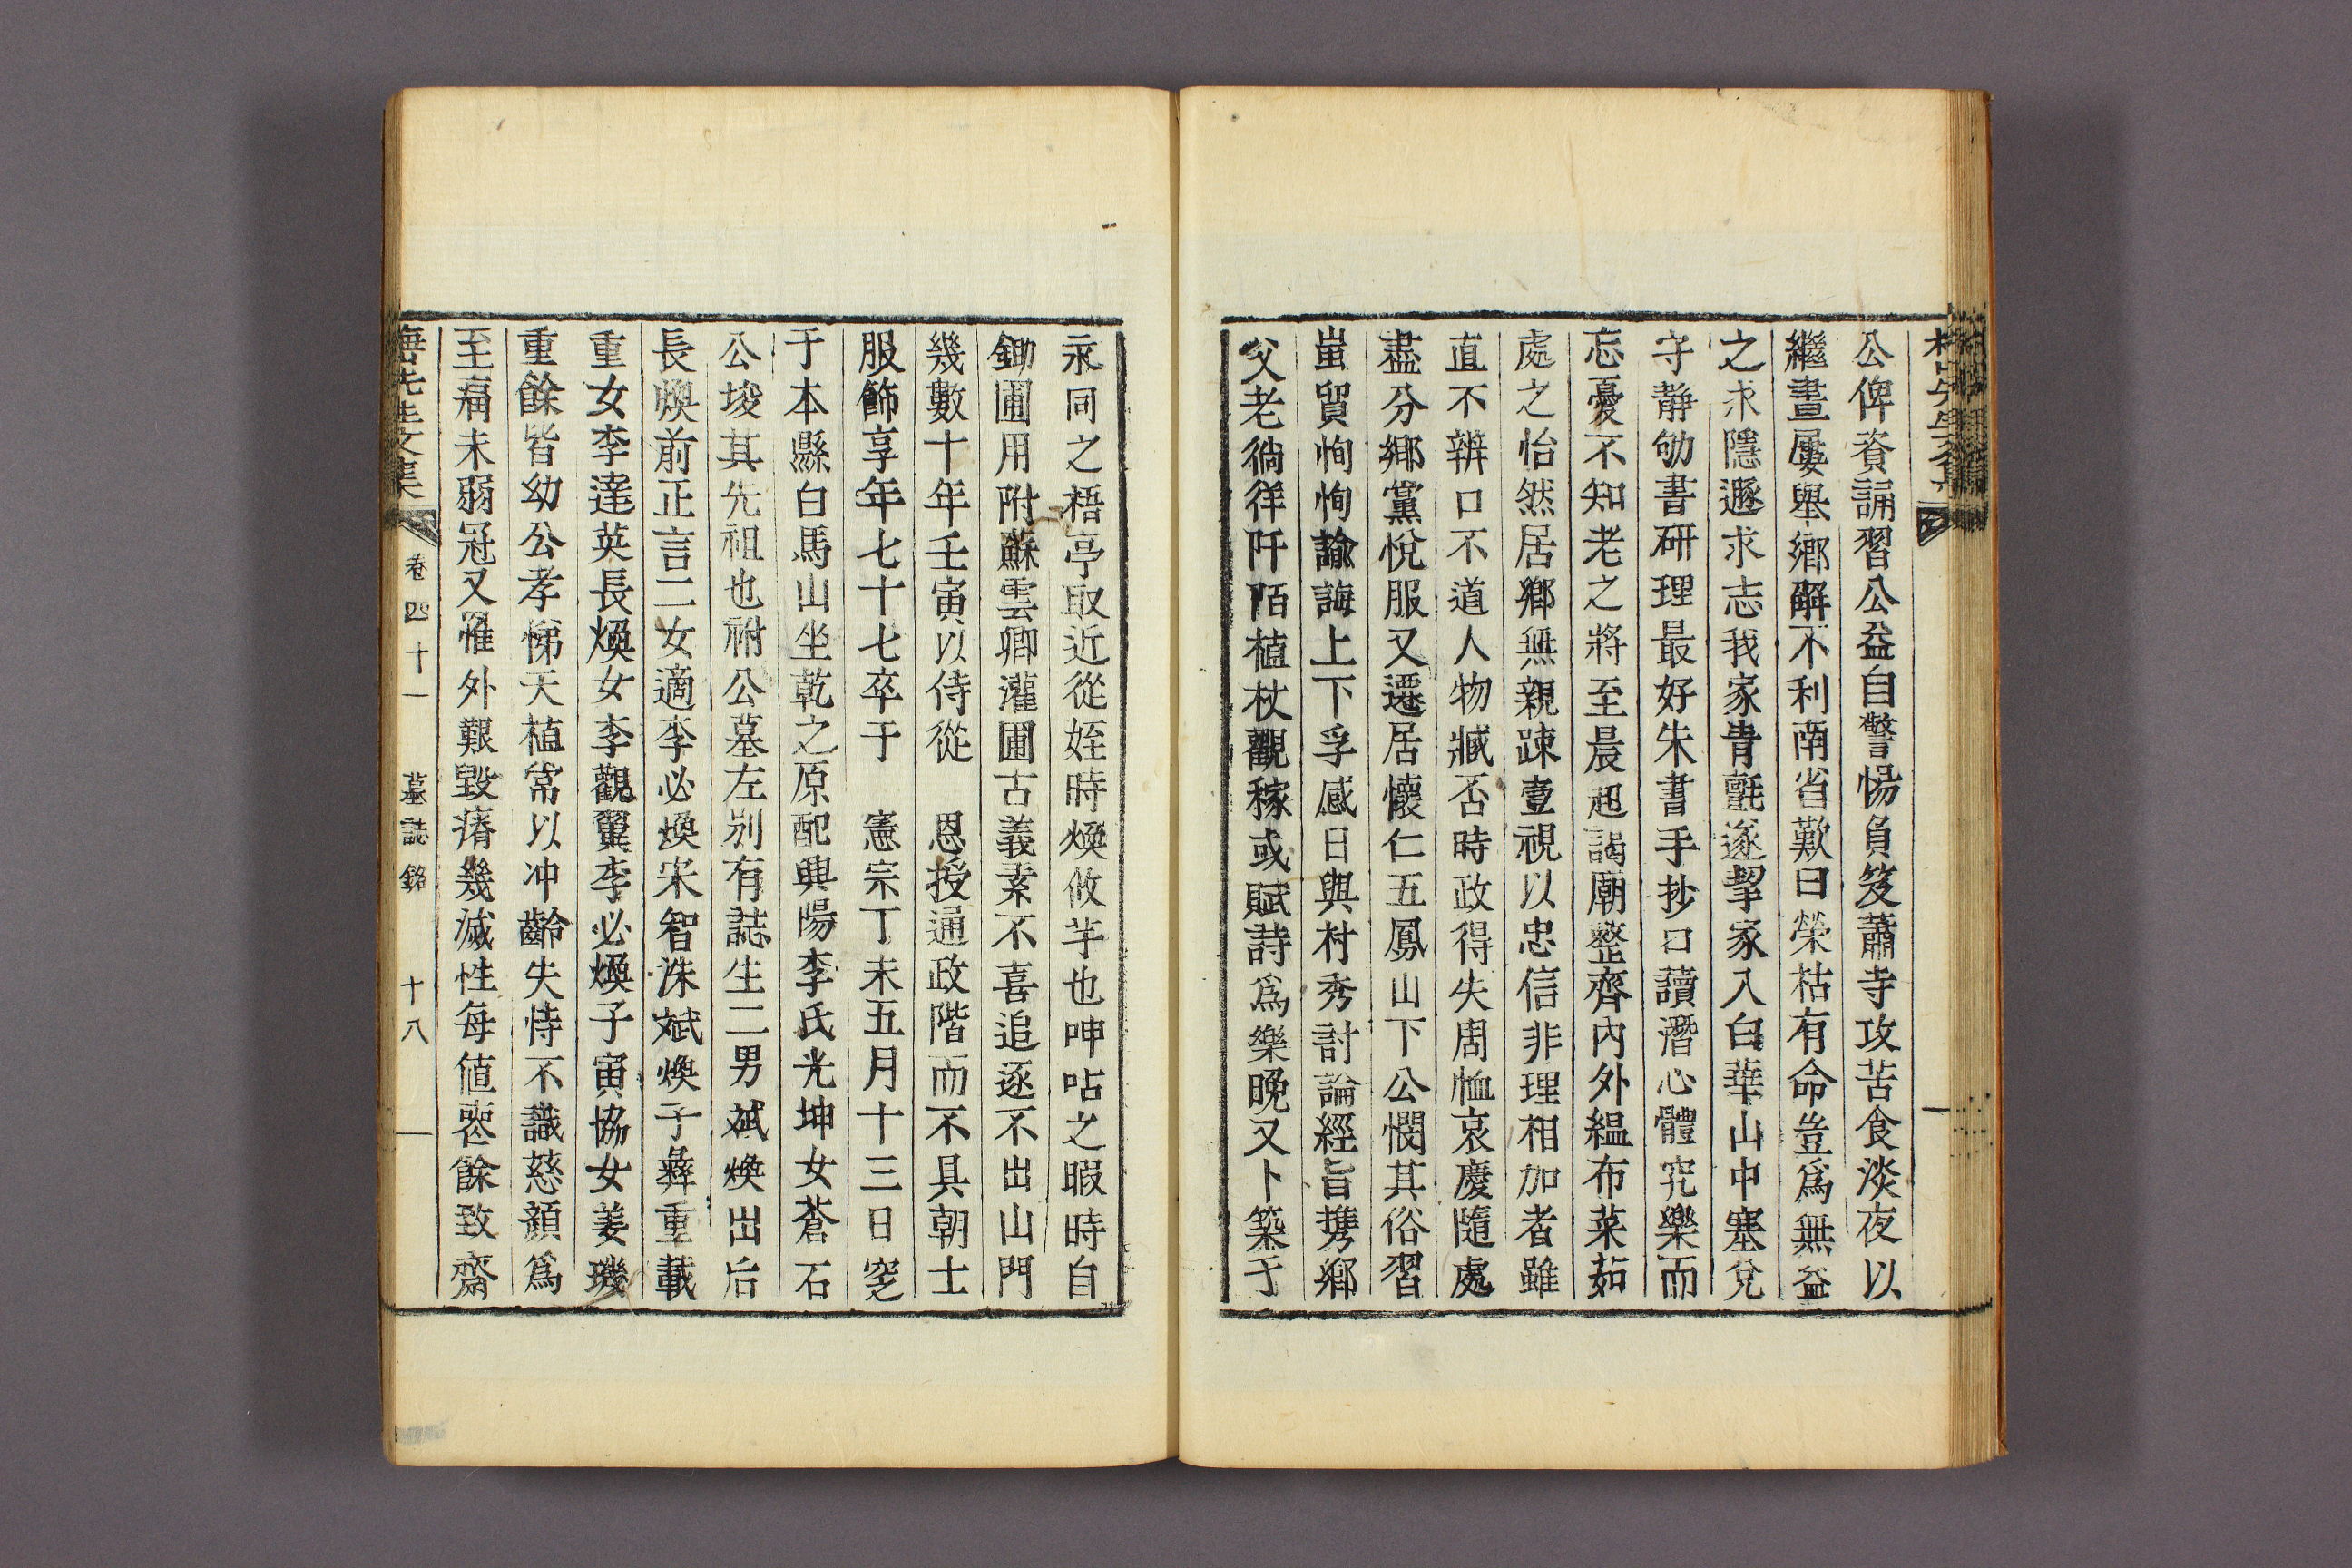 公俾資誦習公益自警惕負笈蕭寺攻苦食淡夜以
繼晝屢舉鄉解不利南省歎曰榮枯有命豈爲無益
之求隱遯求志我家靑氈遂挈家入白華山中塞兌
守靜劬書硏理最好朱書手抄口讀潛心體究樂而
忘憂不知老之將至晨起謁廟整齊內外縕布菜茹
處之怡然居鄉無親踈壹視以忠信非理相加者雖
直不辨口不道人物臧否時政得失周恤哀慶隨處
盡分鄉黨悅服又遷居懷仁五鳳山下公憫其俗習
蚩貿恂恂諭誨上下孚感日與村秀討論經旨携鄉
父老徜徉阡陌植杖觀稼或賦詩爲樂晩又卜築于
永同之梧亭取近從姪時煥攸芋也呻呫之暇時自
鋤圃用附蘇雲卿灌圃古義素不喜追逐不出山門
幾數十年壬寅以侍從 恩授通政階而不具朝士
服飾享年七十七卒于 憲宗丁未五月十三日窆
于本縣白馬山坐乾之原配興陽李氏光坤女蒼石
公埈其先祖也祔公墓左別有誌生二男斌煥出后
長煥前正言二女適李必煥宋智洙斌煥子彝重載
重女李達英長煥女李觀翼李必煥子寅協女姜璣
重餘皆幼公孝悌天植嘗以冲齡失恃不識慈顏爲
至痛未弱冠又罹外艱毁瘠幾滅性每値喪餘致齋
卷四十一 墓誌銘 十八